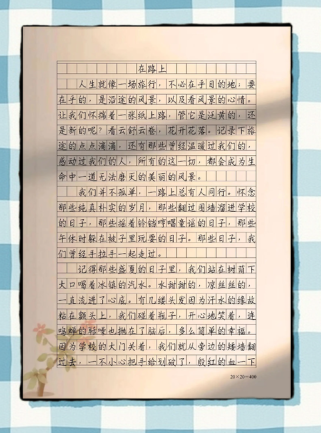 在路上
人生就像一场旅行，不必在乎目的地，要
在乎的，是沿途的风景，以及看风景的心情。
让我们怀揣着一张纸上路，管它是泛黄的，还
是新的呢？看云舒云卷，花开花落。记录下旅
途的点点滴滴，还有那些曾经温暖过我们的，
感动过我们的人，所有的这一切，都会成为生
命中一道无法磨灭的美丽的风景。
我们并不孤单，一路上总有人同行。怀念
那些纯真朴实的岁月，那些翻过围墙溜进学校
的日子，那些摇着铃铛哼唱童谣的日子，那些
午休时躲在被子里玩耍的日子。那些日子，我
们曾经手拉手一起走过。
记得那些盛夏的日子里，我们站在树荫下
大口喝着冰镇的汽水。水甜甜的，凉丝丝的，
一直流进了心底。有几缕头发因为汗水的缘故
粘在额头上，我们碰着瓶子，开心地笑着，连
鸣蝉的轻噪也抛在了脑后，多么简单的幸福。
因为学校的大门关着，我们就从旁边的矮墙翻
过去，一不小心把手给划破了，殷红的血一下
20×20=400